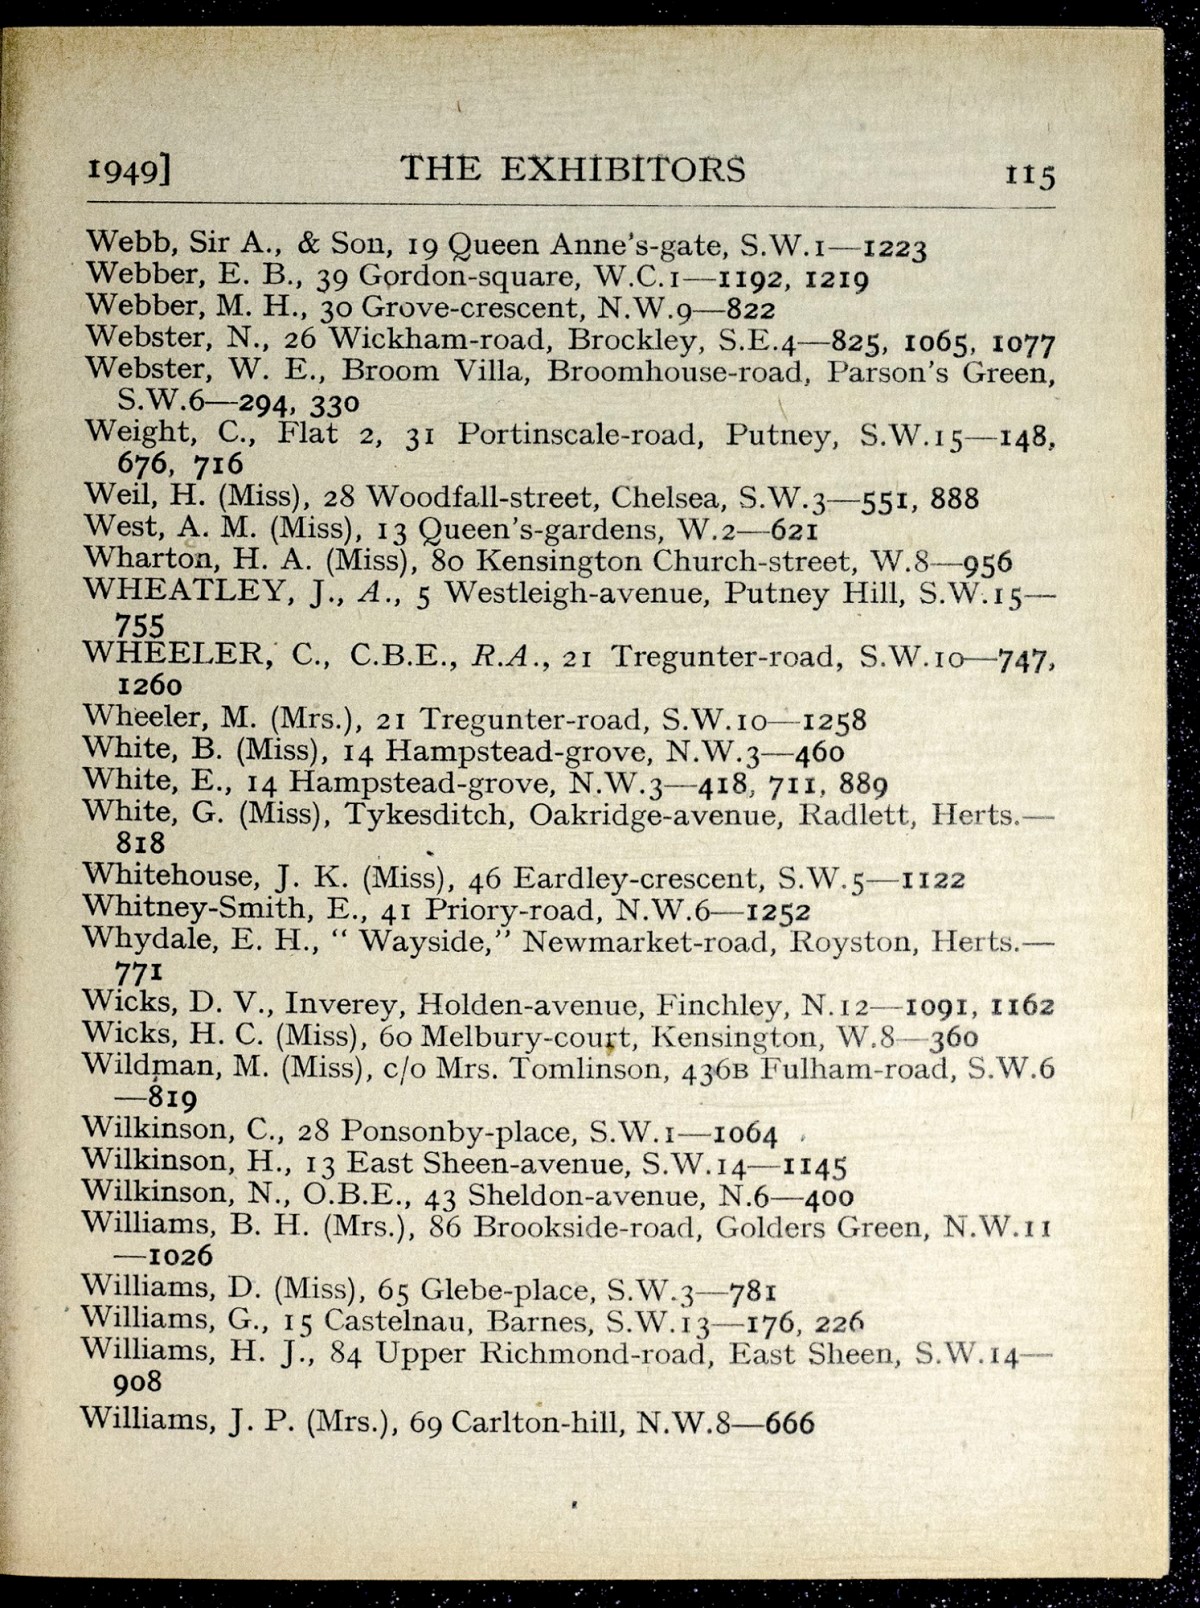 1949] THE EXHIBITORS 115
Webb, Sir A., & Son, 19 Queen Anne's-gate, S.W.1—1223
Webber, E. B., 39 Gordon-square, W.C.1—1192, 1219
Webber, M. H., 30 Grove-crescent, N.W.9—822
Webster, N., 26 Wickham-road, Brockley, S.E.4—825, 1065, 1077
Webster, W. E., Broom Villa, Broomhouse-road, Parson's Green,
S.W.6—294, 330
Weight, C., Flat 2, 31 Portinscale-road, Putney, S.W.15—148,
676, 716
Weil, H. (Miss), 28 Woodfall-street, Chelsea, S.W.3—551, 888
West, A. M. (Miss), 13 Queen's-gardens, W.2—621
Wharton, H. A. (Miss), 80 Kensington Church-street, W.8—956
WHEATLEY, J., A., 5 Westleigh-avenue, Putney Hill, S.W.15—
755
WHEELER, C., C.B.E., R.A., 21 Tregunter-road, S.W.10—747,
1260
Wheeler, M. (Mrs.), 21 Tregunter-road, S.W.10—1258
White, B. (Miss), 14 Hampstead-grove, N.W.3—460
White, E., 14 Hampstead-grove, N.W.3—418, 711, 889
White, G. (Miss), Tykesditch, Oakridge-avenue, Radlett, Herts.—
818
Whitehouse, J. K. (Miss), 46 Eardley-crescent, S.W.5—1122
Whitney-Smith, E., 41 Priory-road, N.W.6—1252
Whydale, E. H., "Wayside," Newmarket-road, Royston, Herts.—
771
Wicks, D. V., Inverey, Holden-avenue, Finchley, N.12—1091, 1162
Wicks, H. C. (Miss), 60 Melbury-court, Kensington, W.8—360
Wildman, M. (Miss), c/o Mrs. Tomlinson, 436B Fulham-road, S.W.6
—819
Wilkinson, C., 28 Ponsonby-place, S.W.1—1064
Wilkinson, H., 13 East Sheen-avenue, S.W.14—1145
Wilkinson, N., O.B.E., 43 Sheldon-avenue, N.6—400
Williams, B. H. (Mrs.), 86 Brookside-road, Golders Green, N.W.11
—1026
Williams, D. (Miss), 65 Glebe-place, S.W.3—781
Williams, G., 15 Castelnau, Barnes, S.W.13—176, 226
Williams, H. J., 84 Upper Richmond-road, East Sheen, S.W.14—
908
Williams, J. P. (Mrs.), 69 Carlton-hill, N.W.8—666